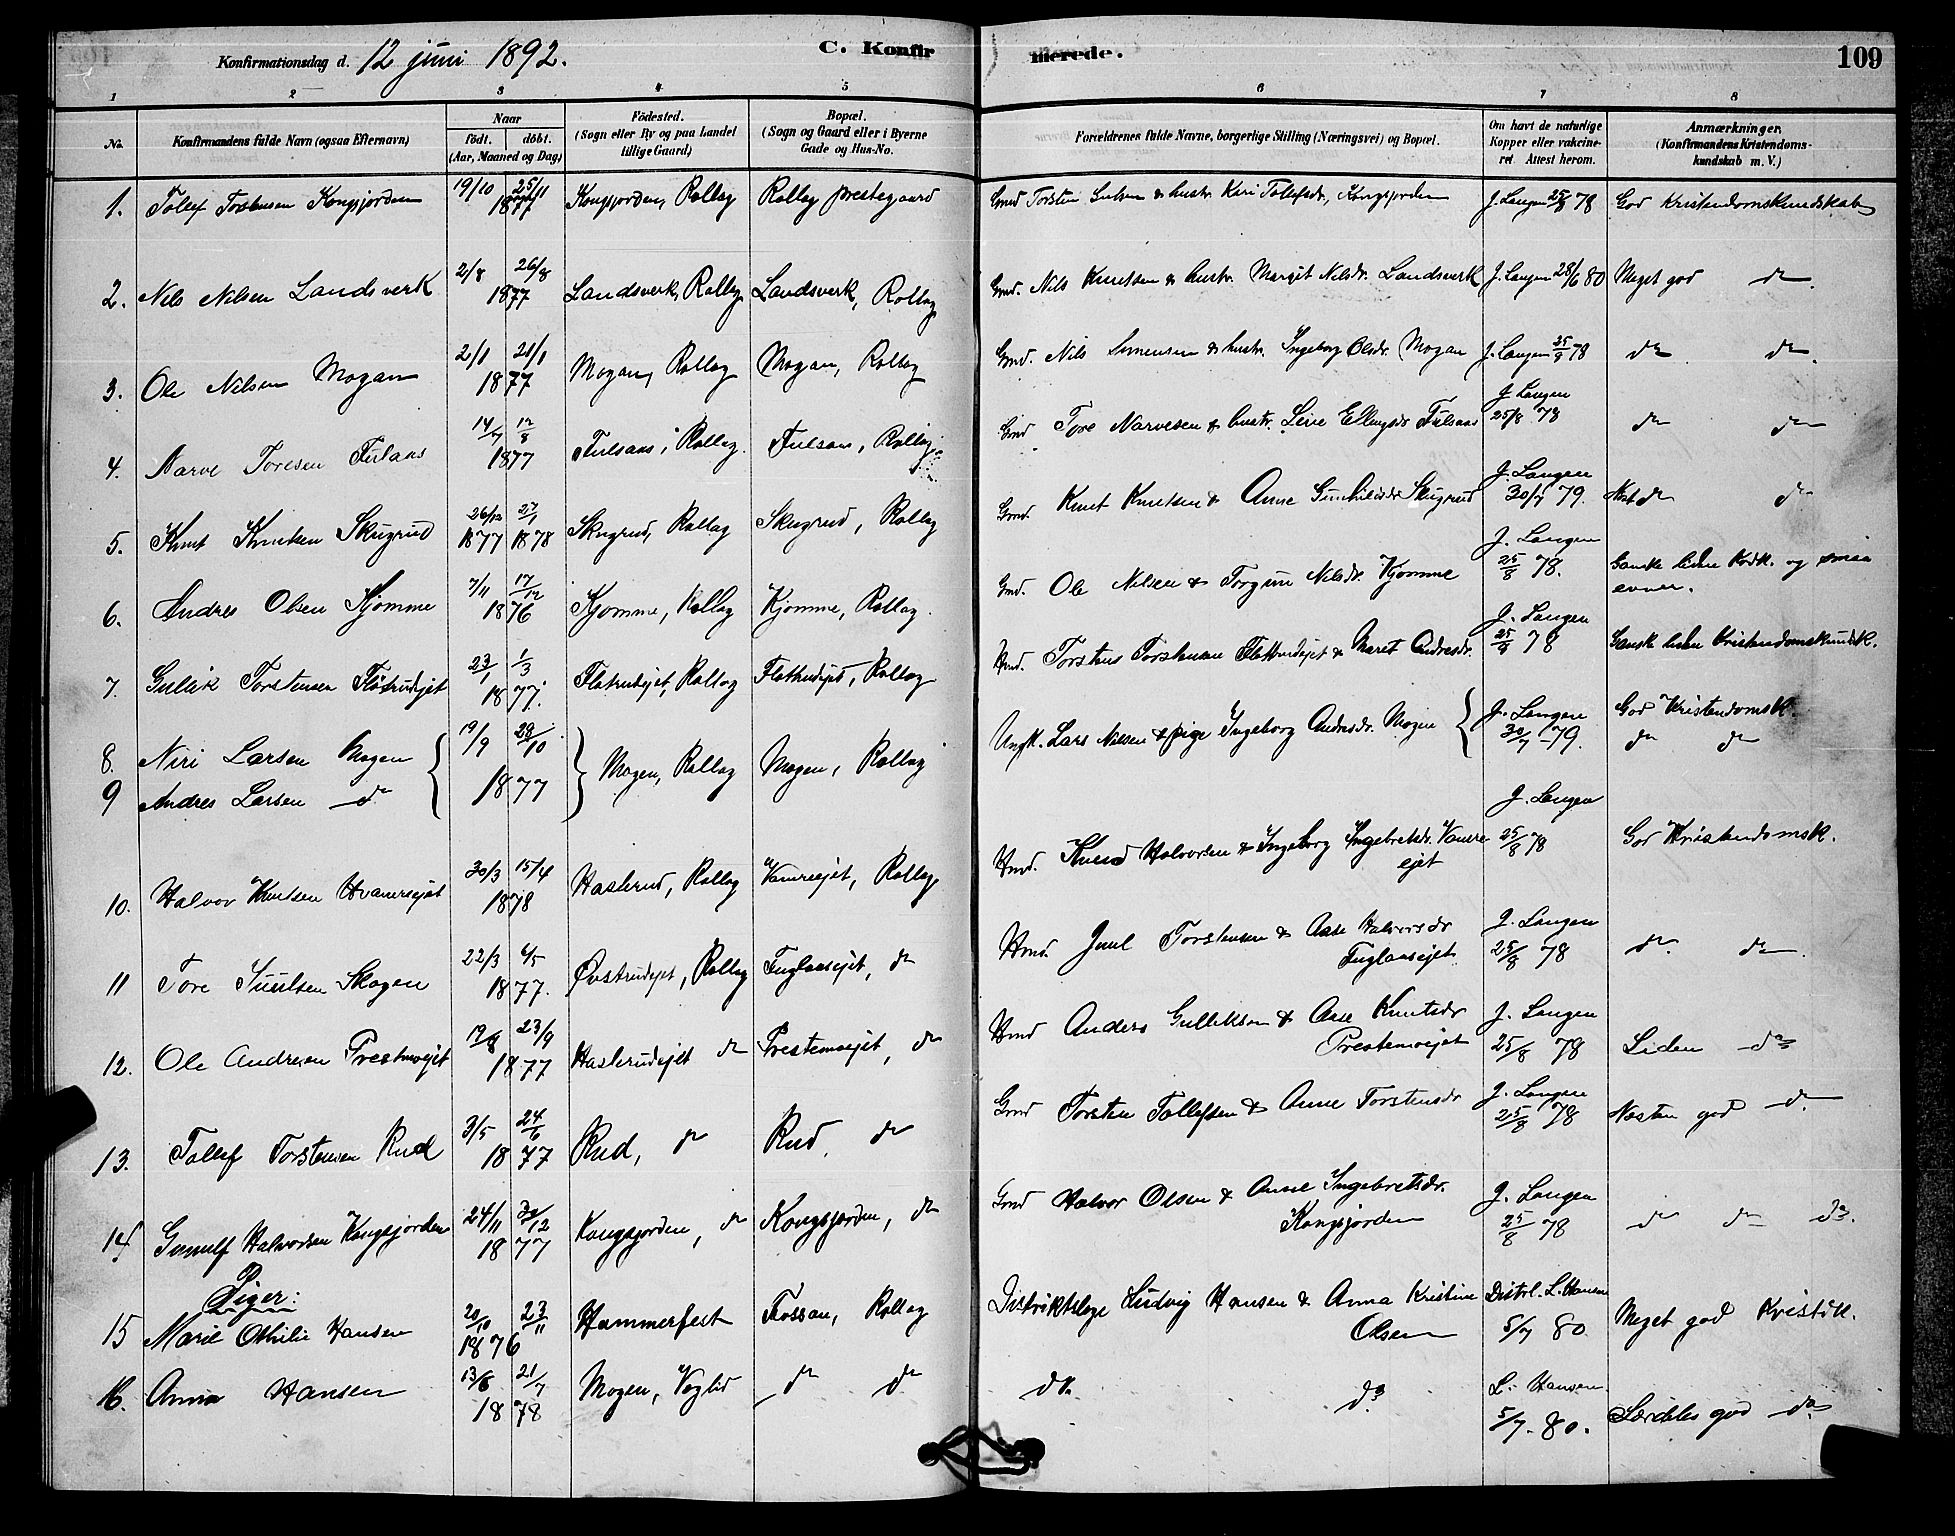 Konfirmationsdag d. 12 juni 1892.
C. Konfirmerede.
109
1 2 3 4 5 6 7 8
No.
Konfirmandens fulde Navn (ogsaa Efternavn)
Naar
födt. döbt.
(Aar, Maaned og Dag)
Födested.
(Sogn eller By og paa Landet
tillige Gaard)
Bopæl.
(Sogn og Gaard eller i Byerne
Gade og Hus-No.
Forældrenes fulde Navne, borgerlige Stilling (Næringsvei) og Bopæl.
Om havt de naturlige
Kopper eller vakcine-
ret. Attest herom.
Anmærkninger.
(Konfirmandens Kristendoms-
kundskab m. V.)
1. Tollef Torstensen Kongsjorden 19/10 25/11 1877 Kongsjorden, Rollag Rollag prestegaard Gmd Torsten hustr. Kari Tollefsdr, Kongsjorden J. Langen 25/8 78 God Kristendomskundskab
2. Nils Nilsen Landsverk 2/8 26/8 1877 Landsverk, Rollag Landsverk, Rollag Gmd. Nils Knutsen & hustr. Margit Nilsdr. Landsverk J. Langen 28/6 80 Meget god do.
3. Ole Nilsen Mogan 2/1 21/1 1877 Mogan, Rollag Mogan, Rollag Gmd. Nils Simensen & hustr. Ingeborg Olsdr. Mogan J. Langen 25/8 78 do. do.
4. Narve Toresen Fulsaas 14/7 12/8 1877 Fulsaas, Rollag. Fulsaas, Rollag. Gmd Tore Narvesen & hustr. Live Ellingsdr Fulsaas J Langen 25/8 78 do do
5. Knut Knutsen Skugrud 26/12 1877 27/1 1878 Skugrud, Rollag Skugrud, Rollag Gmd. Knut Knutsen & Anne Gunhildsdr Skugrud J. Langen 30/7 79. do do
6. Andres Olsen Kjømme 7/11 17/12 1876 Kjomme, Rollag Kjomme, Rollag. Gmd. Ole Nilsen & Torgun Nilsdr. Kjomme J. Langen 25/8 78. Ganske liden Krdk. og smaa
evner.
7. Gulik Torstensen Fløtrudejet 23/1 1/3 1877. Flotrudejet, Rollag Flothudejet, Rollag Hmd. Torsten Torstensen Flottrudejet & Maret Andresdr. J. Langen 25/8 78 Ganske liden Kristendomskundsk.
8. Niri Larsen Mogen 19/9 28/10 1877 Mogen, Rollag Mogen, Rollag Ungk. Lars Nilsen & pige Ingeborg Andresdr. Mogen J. Langen 30/7 -79. God Kristendomsk.
9 Andres Larsen do do do
10. Halvor Knutsen Hvamreejet 30/3 15/4 1878 Haslerud, Rollag Vamreejet, Rollag Hmd. Knud Halvorsen & Ingeborg Ingebretsdr. Vamre
ejet J. Langen 25/8 78 God Kristendomsk.
11 Tore Juulsen Skogen 22/3 6/5 1877. Øvstrudejet, Rollag Fuglaasejet, do Hmd. Juul Torstensen & Aase Halvorsdr
Fuglaasejet J. Langen 25/8 78 do do.
12. Ole Andresen Prestmoejet 19/8 23/9 1877 Haslerudejet do Prestemoejet, do Hmd Anders Gulliksen & Aase Knutsdr
Prestemoejet J. Langen 25/8 78 Liden do
13. Tollef Torstensen Rud 3/5 24/6 1877 Rud, do Rud, do Gmd Torsten Tollefsen & Anne Torstensdr J. Langen 25/8 78 Næsten god do.
14. Gunulf Halvorsen Kongsjorden 24/11 30/12 1877 Kongsjorden, do Kongsjorden, do Gmd Halvor Olsen & Anne Ingebretsdr.
Kongsjorden J. Langen 25/8 78 do do do.
Piger:
15 Marie Othilie Hansen 20/10 23/11 1876 Hammerfest Fossan, Rollag Distriktslæge Ludvig Hansen & Anna Kristine
Olsen Distrl. L. Hansen 5/7 80. Meget god Kristdk.
16. Anna Hansen 13/6 21/7 1878 Mogen, Veglid do do do. do. L. Hansen 5/7. 80. Særdeles god do